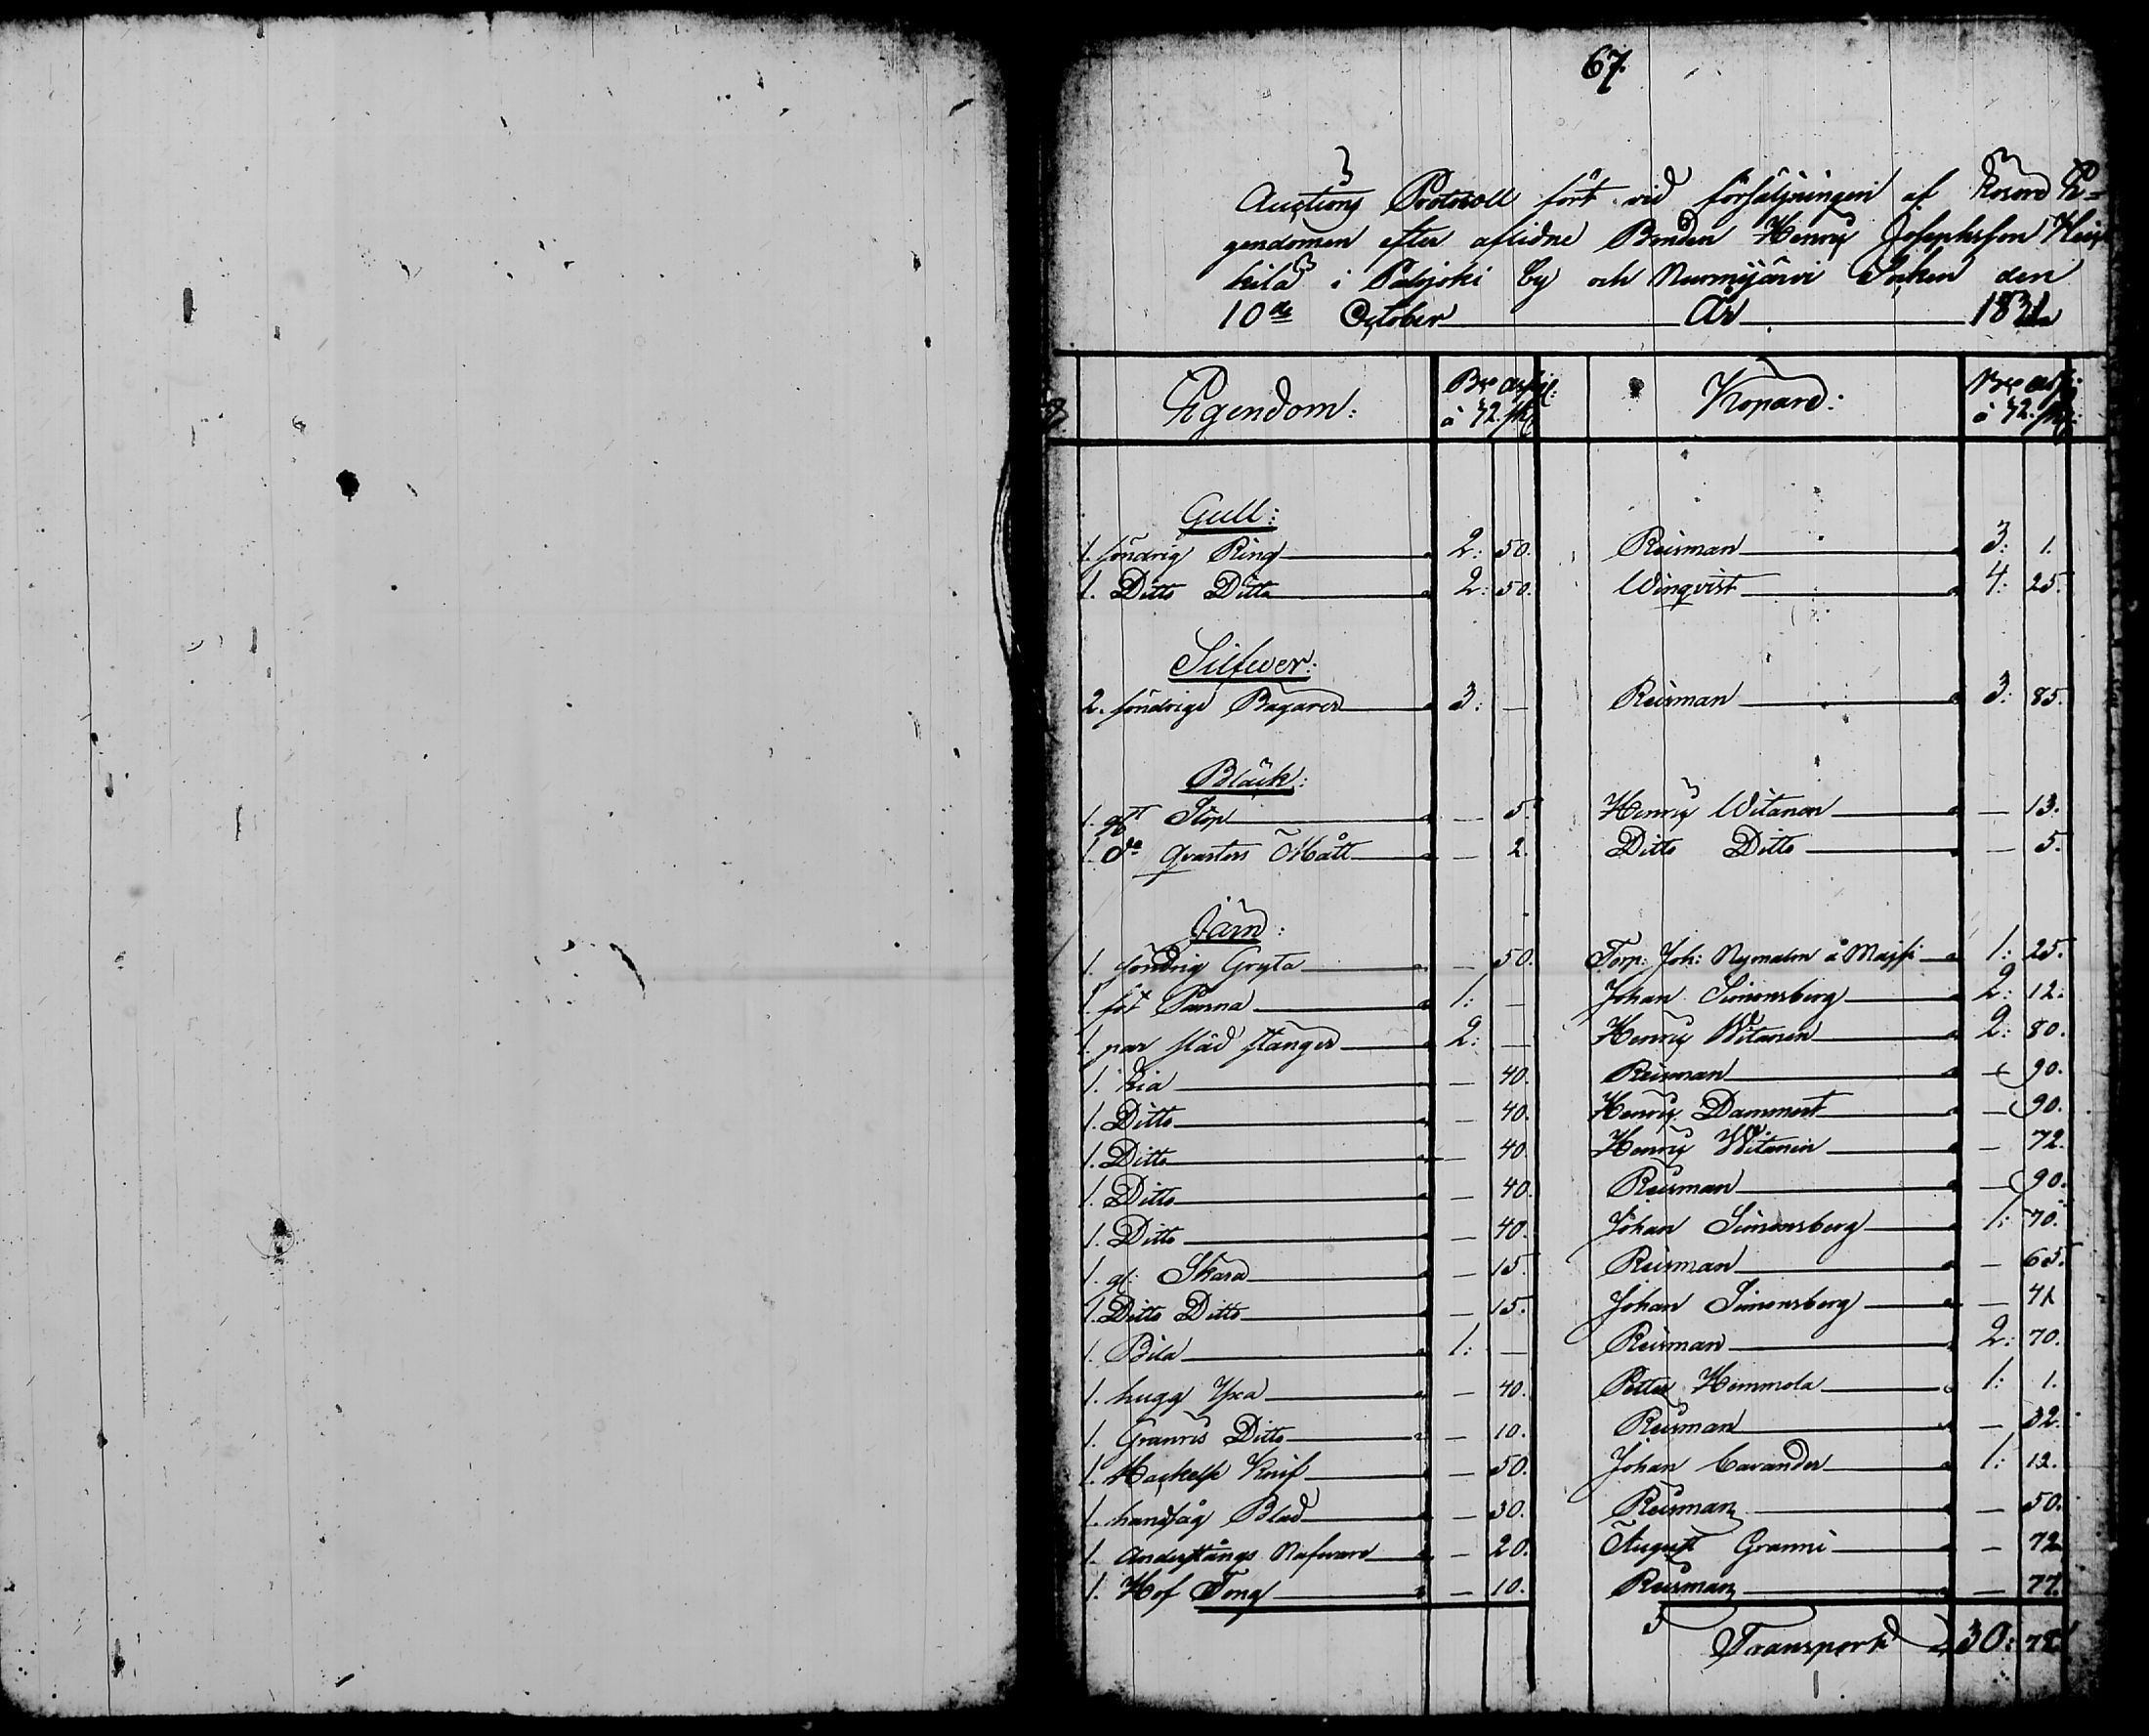 67.
Auctions Protocoll fört vid försäljningen af Lösöre E=
gendomen efter aflidne Bonden Henric Josephsson Heik
kilä i Palojoki by och Nurmijärvi Socken den
10de October År 1831
Egendom: Bco Assi: Köpare: Bco Assi:
à 72. sk à 72. sk
Gull:
1. söndrig Ring 2: 50. Reisman 3: 1.
1. Ditto Ditto 2: 50. Winqvist 4: 25.
Silfwer:
2. söndriga Bägare 3: — Reisman 3: 85.
Bläck:
1. gl Stop — 5. Henric Witanen — 13.
1. do qvarters Mått — 2. Ditto Ditto — 5.
Järn:
1. söndrig Gryta — 50. Torp: Joh: Nymalm 1: 25.
1. fot Panna 1: — Johan Simonsberg 2: 12.
1. par släd stänger 2: — Henric Witanen 2: 80.
1. Lia — 40. Reisman — 90.
1. Ditto — 40. Henric Dammert — 90.
1. Ditto — 40. Henric Witanen — 72.
1. Ditto — 40. Reisman — 90.
1. Ditto — 40. Johan Simonsberg 1: 70.
1. gl: Skära — 15. Reisman — 65.
1. Ditto Ditto — 15. Johan Simonsberg — 41
1. Bila 1: — Reisman 2: 70.
1. hugg Yxa — 40. Petter Himmola 1: 1.
1. Granris Ditto — 10. Reisman — 32.
1. Hackelse Knif — 50. Johan Cavander 1: 12.
1. handsåg Blad — 30. Reisman — 50.
1. Nafware — 20. August Granni — 72
1. Hof Tong — 10. Reisman — 77.
Transport 30: 78